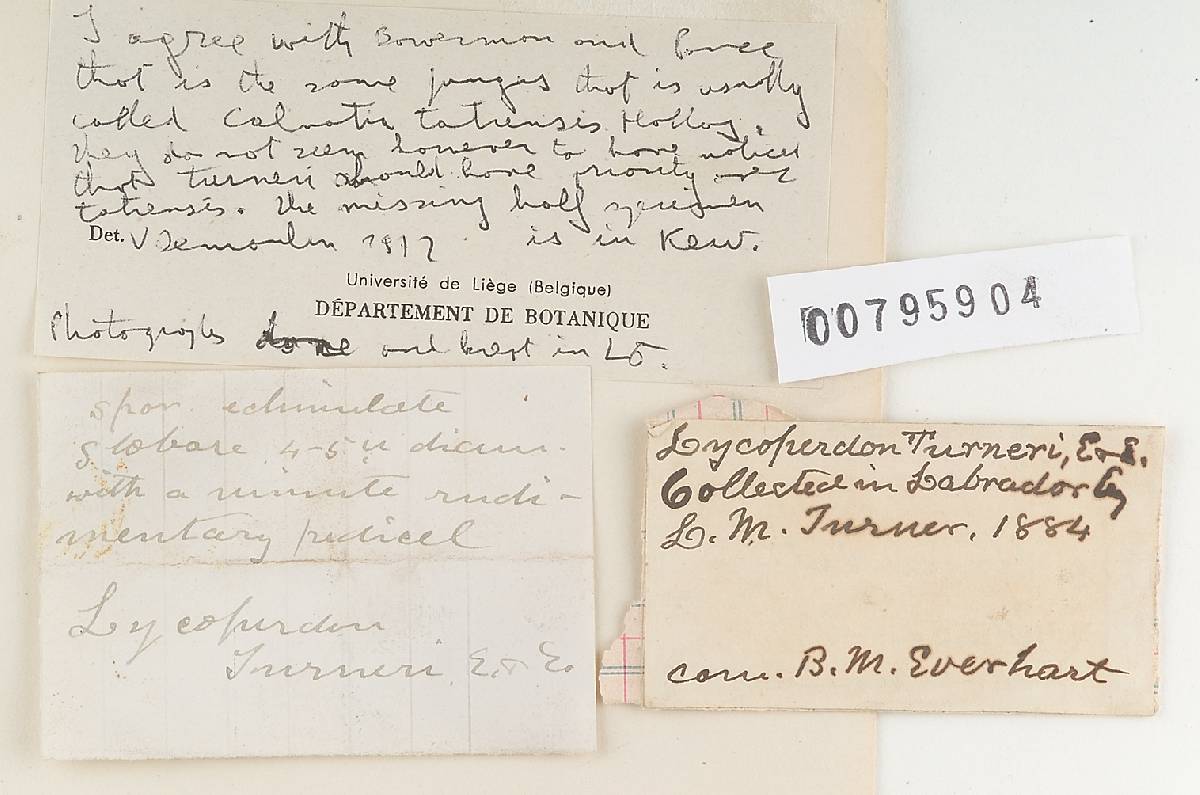 I agree with Bowerman and
that is the same fungus that is usually
called Calvatia tatrensis Hollos.
they do not seem however to have noticed
that turneri should have priority over
tatrensis. the missing half specimen
Det. V Demoulin is in Kew.
Université de Liège (Belgique)
DÉPARTEMENT DE BOTANIQUE
Photographs done and kept in LG.
00795904
spor. echinulate
globose 4-5 u diam.
with a minute rudi-
mentary pedicel
Lycoperdon
Turneri E. & E.
Lycoperdon Turneri, E & E.
Collected in Labrador by
L. M. Turner, 1884
com. B. M. Everhart